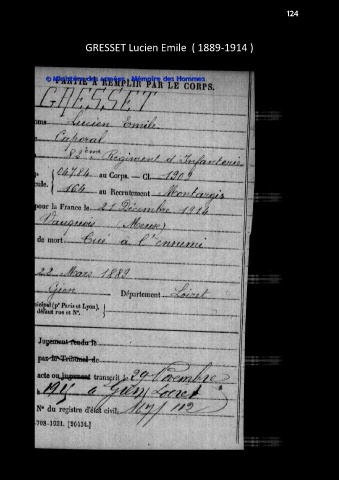 124
GRESSET Lucien Emile  ( 1889-1914 )
PARTIE À REMPLIR PAR LE CORPS.
© Ministère des armées - Mémoire des Hommes
GRESSET
oms Lucien Emile
Caporal
82ème Régiment d'Infanterie
04784 au Corps. — Cl. 1909
cule. 164 au Recrutement Montargis
pour la France le 21 Décembre 1914
Vauquois (Meuse)
de mort Tué à l'ennemi
22 Mars 1889
Gien Département Loiret
nicipal (pr Paris et Lyon),
défaut rue et N°.
Jugement rendu le
par le Tribunal de
acte ou jugement transcrit le 29 Novembre
1915 à Gien Loiret
N° du registre d'état civil 167/112
-708-1921. [26434.]